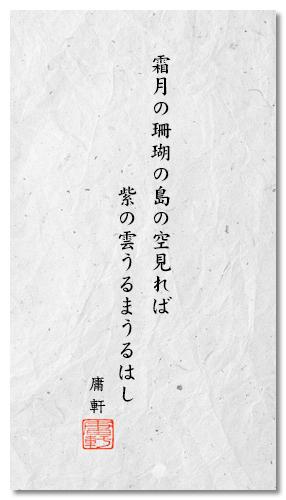 霜月の珊瑚の島の空見れば
紫の雲うるまうるはし
庸軒
庸軒